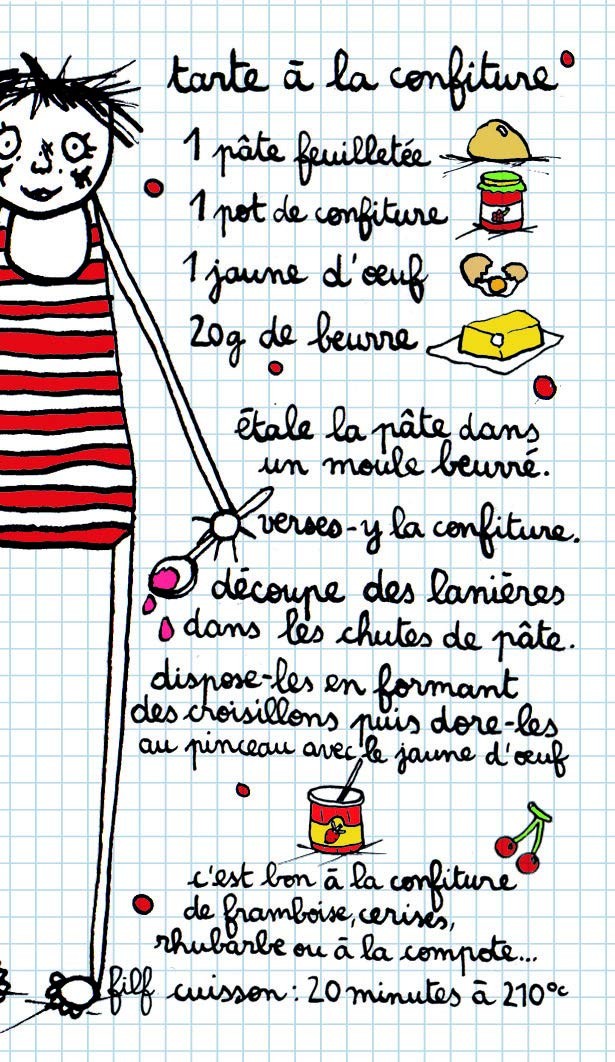 tarte à la confiture
1 pâte feuilletée
1 pot de confiture
1 jaune d'œuf
20g de beurre
étale la pâte dans
un moule beurré.
verses-y la confiture.
découpe des lanières
dans les chutes de pâte.
dispose-les en formant
des croisillons puis dore-les
au pinceau avec le jaune d'œuf
c'est bon à la confiture
de framboise, cerises,
rhubarbe ou à la compote...
filf
cuisson : 20 minutes à 210°c